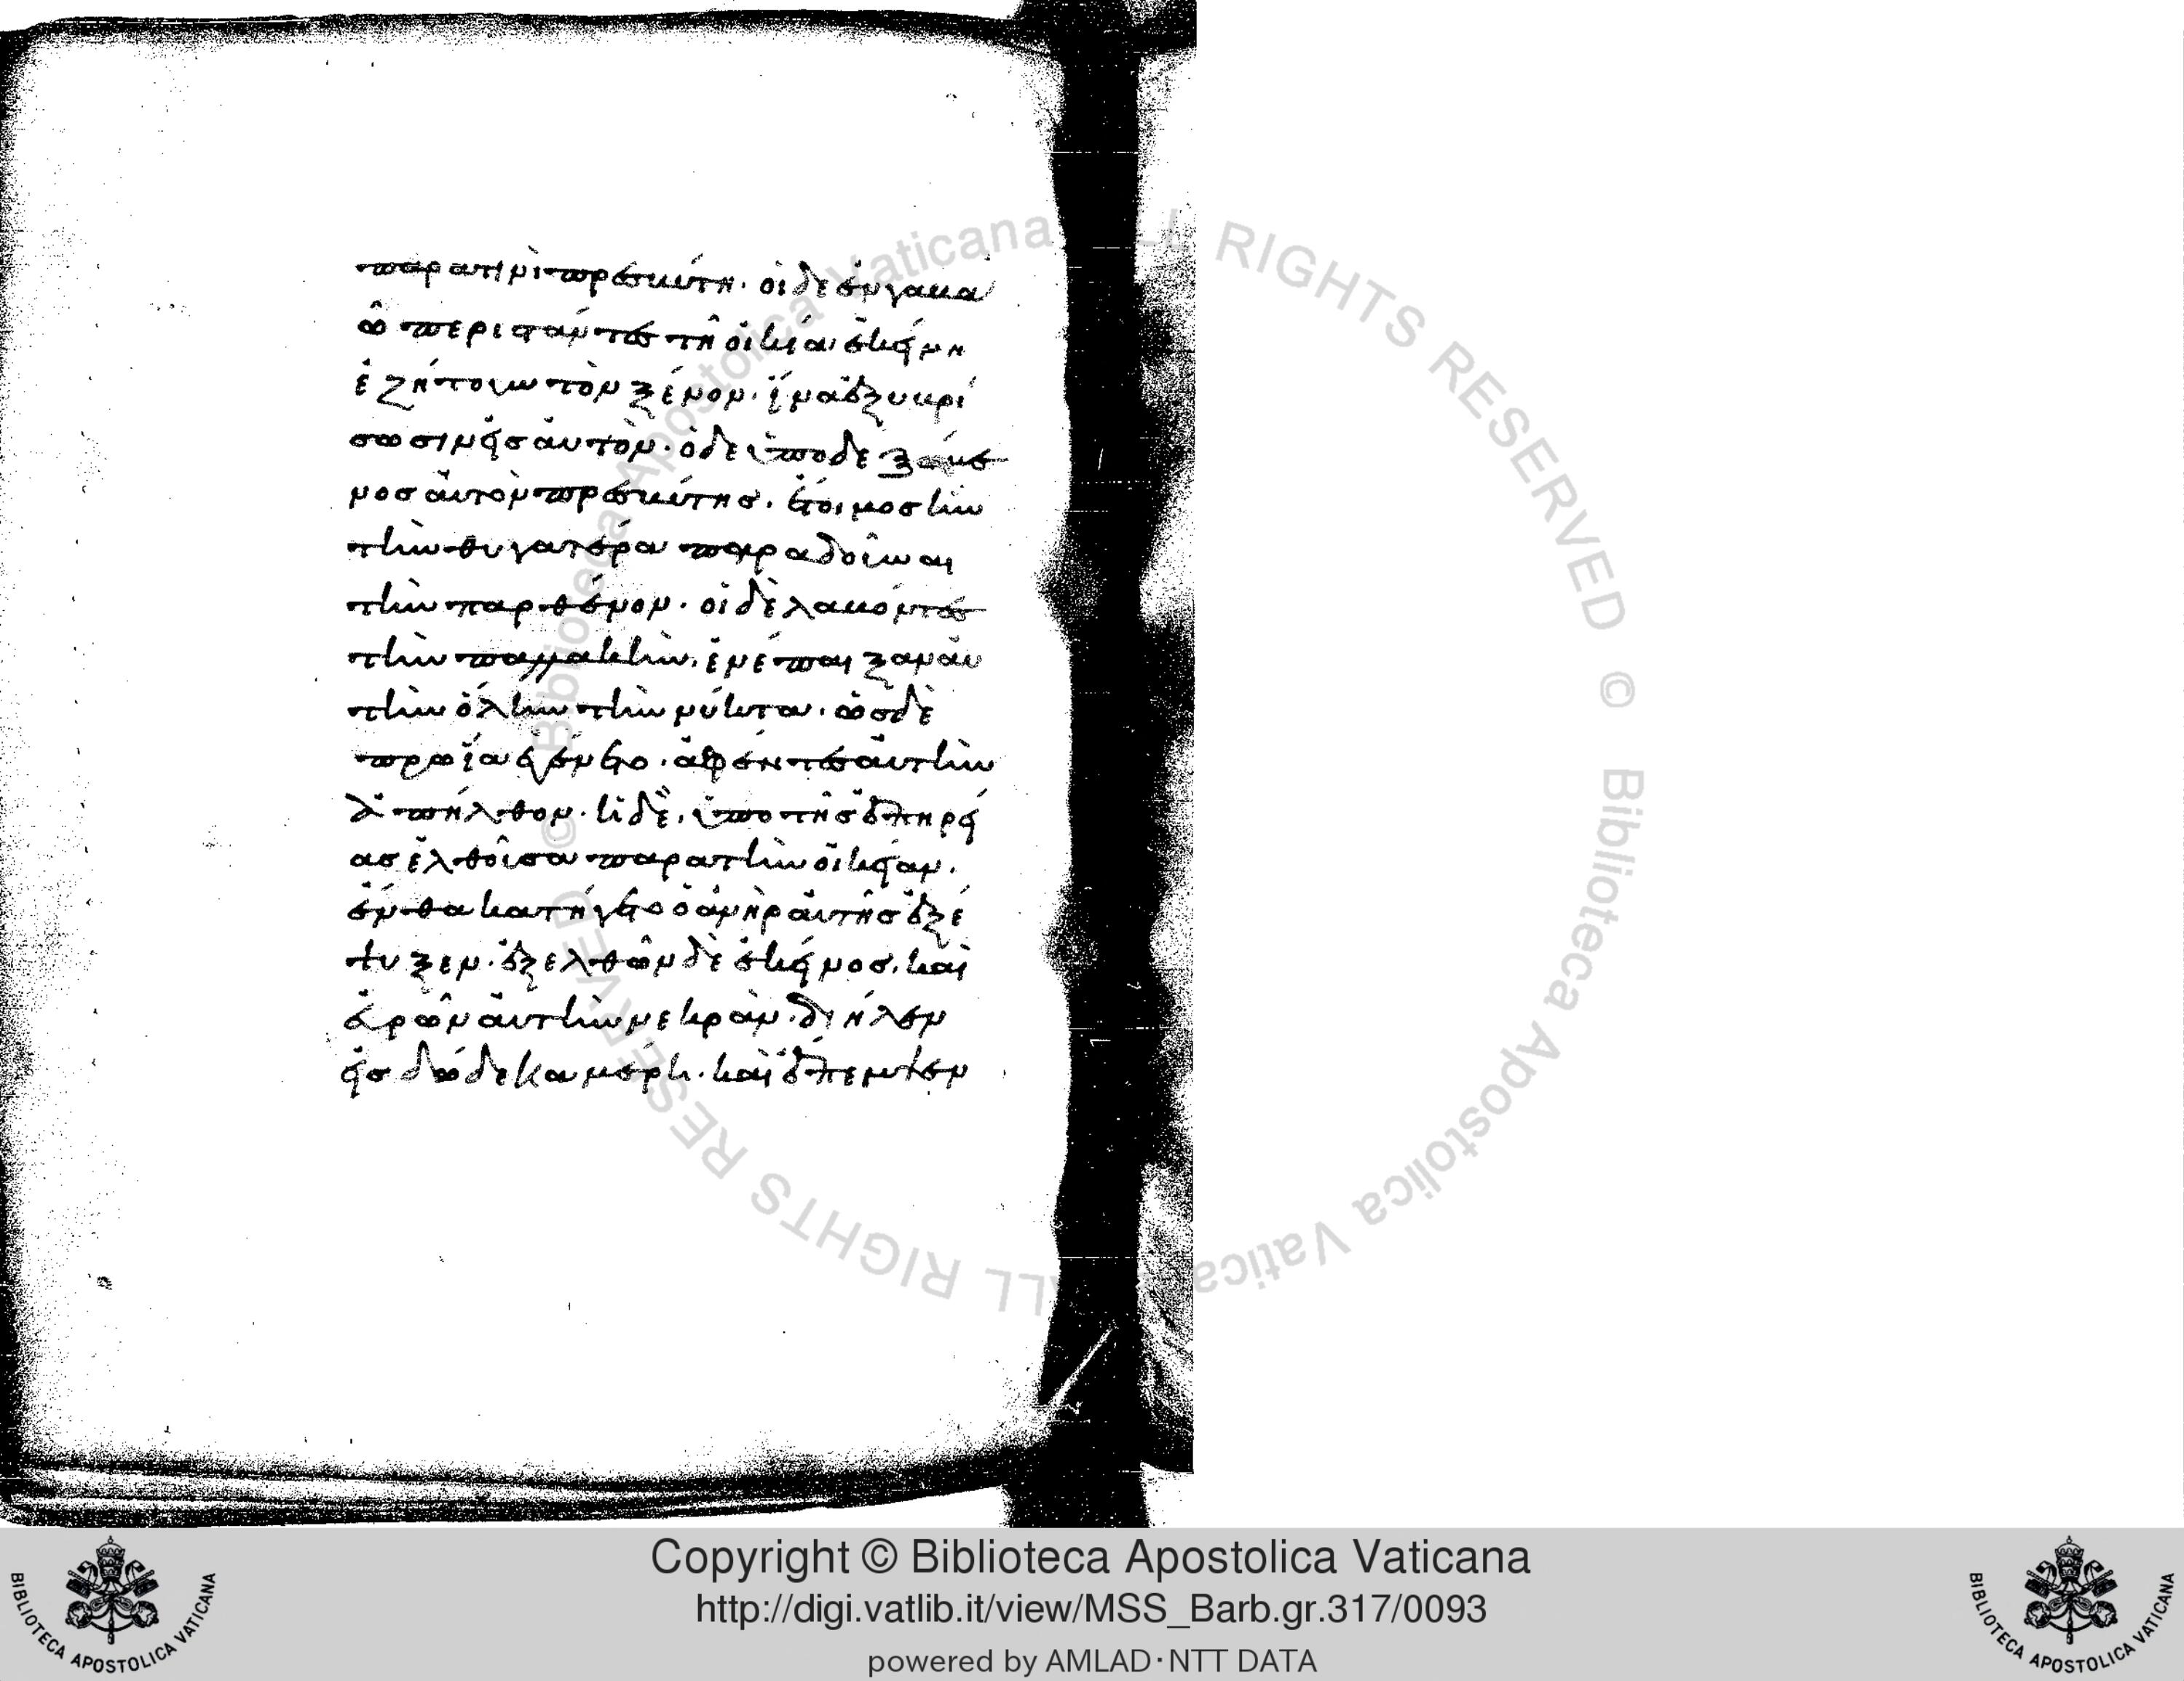 παρατινὶ πρεσβύτη. οἱ δὲ ἐν γαβα
ῶ περιστάντες τῆ οἰκία ἐκείνη
ἐζήτουν τὸν ξένον. ἵνα ἐξυβρί
σωσιν εἰς αὐτόν. ὁ δὲ ὑποδεξάμε
νος αὐτὸν πρεσβύτης. ἕτοιμος ἦν
τὴν θυγατέρα παραδοῦναι
τὴν παρθένον. οἱ δὲ λαβόντες
τὴν παλλακὴν. ἐνέπαιξαν αὐ
τὴν ὅλην τὴν νύκτα. ὡς δὲ
πρωΐα ἐγένετο. ἀφέντες αὐτὴν
ἀπῆλθον. ἡ δὲ, ὑπὸ τῆς ἐπηρεί
ας ἐλθοῦσα παρὰ τὴν οἰκίαν.
ἔνθα κατήγετο ὁ ἀνὴρ αὐτῆς ἐξέ
ψυξεν. ἐξελθὼν δὲ ἐκεῖνος. καὶ
εὑρὼν αὐτὴν νεκρὰν. διεῖλεν
εἰς δώδεκα μέρη. καὶ ἔπεμψεν
Copyright © Biblioteca Apostolica Vaticana
http://digi.vatlib.it/view/MSS_Barb.gr.317/0093
powered by AMLAD·NTT DATA
BIBLIOTECA APOSTOLICA VATICANA
BIBLIOTECA APOSTOLICA VATICANA